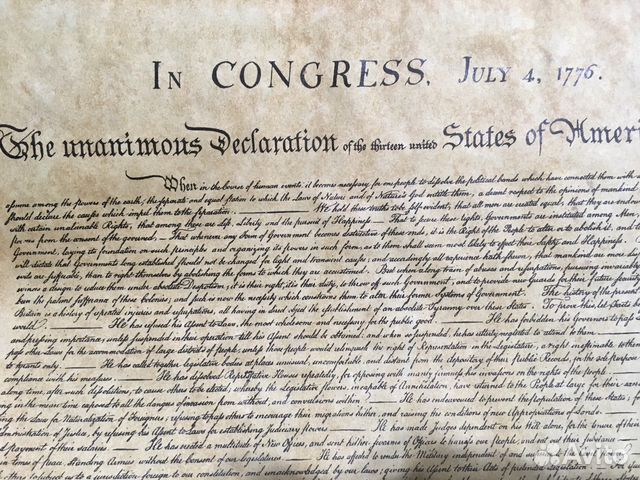 IN CONGRESS, JULY 4, 1776.
The unanimous Declaration of the thirteen united States of Ameri
When in the course of human events, it becomes necessary for one people to dissolve the political bands which have connected them with
assume among the powers of the earth, the separate and equal station to which the Laws of Nature and of Nature's God entitle them, a decent respect to the opinions of mankind
should declare the causes which impel them to the separation. We hold these truths to be self-evident, that all men are created equal, that they are
with certain unalienable Rights, that among these are Life, Liberty and the pursuit of Happiness. — That to secure these rights, Governments are instituted among Men,
powers from the consent of the governed, — That whenever any Form of Government becomes destructive of these ends, it is the Right of the People to alter or to abolish it, and to
Government, laying its foundation on such principles and organizing its powers in such form, as to them shall seem most likely to effect their Safety and Happiness.
will dictate that Governments long established should not be changed for light and transient causes; and accordingly all experience hath shewn, that mankind are more
are sufferable, than to right themselves by abolishing the forms to which they are accustomed. But when a long train of abuses and usurpations, pursuing invariably
evinces a design to reduce them under absolute Despotism, it is their right, it is their duty, to throw off such Government, and to provide new Guards for their future security
been the patient sufferance of these Colonies; and such is now the necessity which constrains them to alter their former Systems of Government. The history of the present
Britain is a history of repeated injuries and usurpations, all having in direct object the establishment of an absolute Tyranny over these States. To prove this, let Facts be
world. — He has refused his Assent to Laws, the most wholesome and necessary for the public good. — He has forbidden his Governors to pass
and pressing importance, unless suspended in their operation till his Assent should be obtained; and when so suspended, he has utterly neglected to attend to them. —
pass other Laws for the accommodation of large districts of people, unless those people would relinquish the right of Representation in the Legislature, a right inestimable to them
to tyrants only. — He has called together legislative bodies at places unusual, uncomfortable, and distant from the depository of their public Records, for the sole purpose
compliance with his measures. — He has dissolved Representative Houses repeatedly, for opposing with manly firmness his invasions on the rights of the people.
long time, after such dissolutions, to cause others to be elected; whereby the Legislative powers, incapable of Annihilation, have returned to the People at large for their
in the mean time exposed to all the dangers of invasion from without, and convulsions within. — He has endeavoured to prevent the population of these States; for
the Laws for Naturalization of Foreigners; refusing to pass others to encourage their migrations hither, and raising the conditions of new Appropriations of Lands.
dministration of Justice, by refusing his Assent to Laws for establishing Judiciary powers. — He has made Judges dependent on his Will alone, for the tenure of their
payment of their salaries. — He has erected a multitude of New Offices, and sent hither swarms of Officers to harrass our people, and eat out their substance.
in times of peace, Standing Armies without the Consent of our legislatures. — He has affected to render the Military independent of and
to subject us to a jurisdiction foreign to our constitution, and unacknowledged by our laws; giving his Assent to their Acts of pretended Legislation: — For
Avito